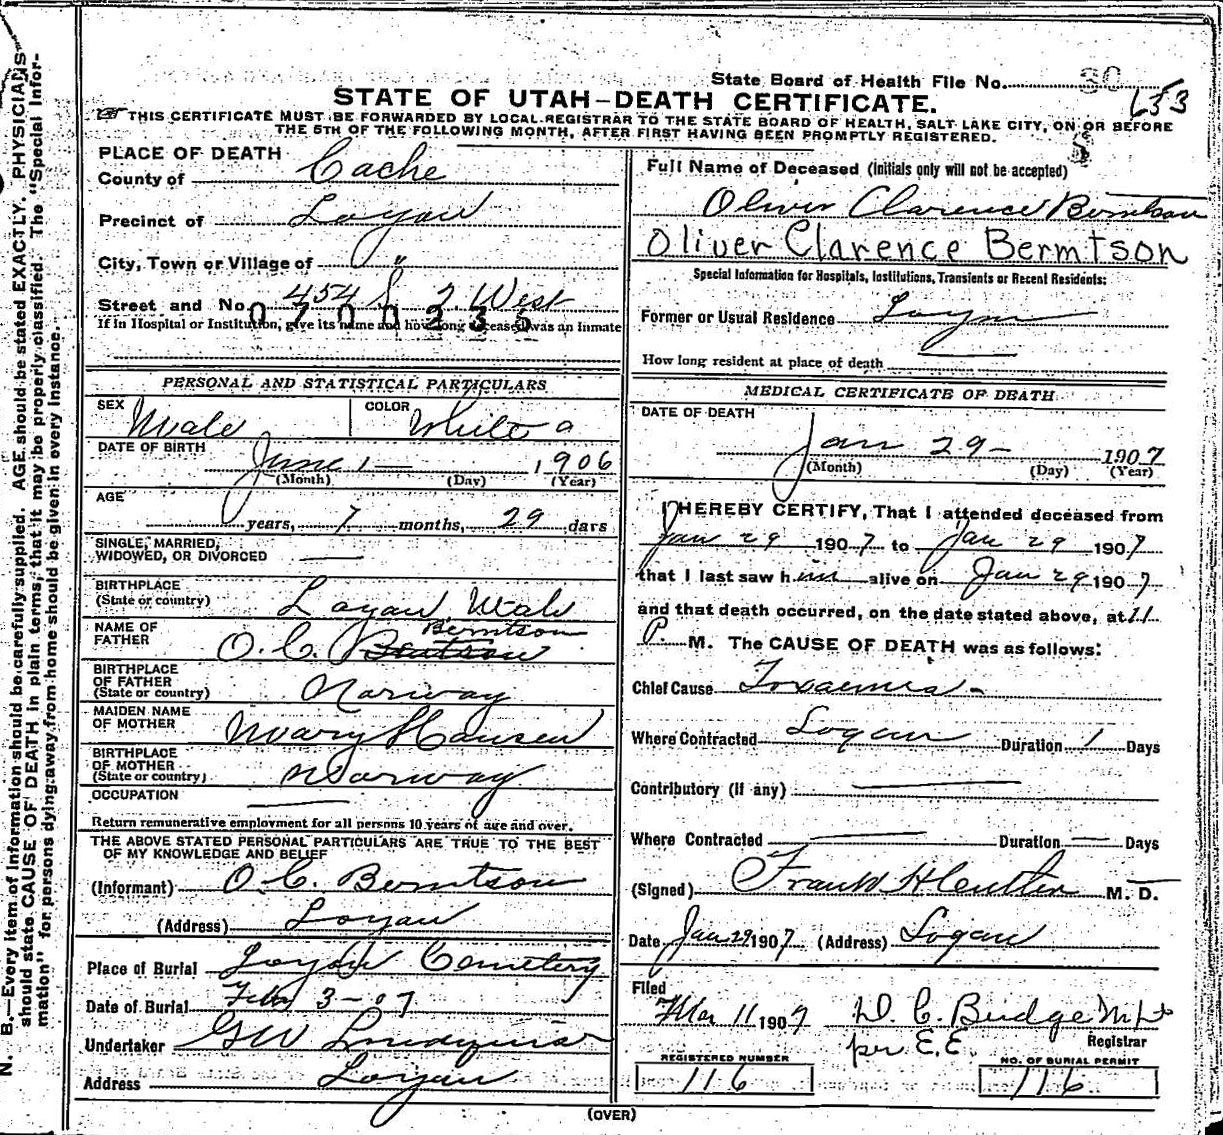 State Board of Health File No. 30
653
STATE OF UTAH—DEATH CERTIFICATE.
THIS CERTIFICATE MUST BE FORWARDED BY LOCAL REGISTRAR TO THE STATE BOARD OF HEALTH, SALT LAKE CITY, ON OR BEFORE
THE 5TH OF THE FOLLOWING MONTH, AFTER FIRST HAVING BEEN PROMPTLY REGISTERED.
N. B.—Every item of information should be carefully supplied. AGE should be stated EXACTLY. PHYSICIANS
should state CAUSE OF DEATH in plain terms, that it may be properly classified. The "Special Infor-
mation" for persons dying away from home should be given in every instance.
PLACE OF DEATH
County of Cache
Precinct of Logan
City, Town or Village of "
Street and No. 454 S 2 West
0700235
If in Hospital or Institution, give its name and how long deceased was an inmate
PERSONAL AND STATISTICAL PARTICULARS
SEX Male COLOR White a
DATE OF BIRTH June 1— 1906
(Month) (Day) (Year)
AGE
years, 7 months, 29 days
SINGLE, MARRIED,
WIDOWED, OR DIVORCED
BIRTHPLACE
(State or country) Logan Utah
NAME OF
FATHER O. C. Berntson
BIRTHPLACE
OF FATHER
(State or country) Norway
MAIDEN NAME
OF MOTHER Mary Hansen
BIRTHPLACE
OF MOTHER
(State or country) Norway
OCCUPATION
Return remunerative employment for all persons 10 years of age and over.
THE ABOVE STATED PERSONAL PARTICULARS ARE TRUE TO THE BEST
OF MY KNOWLEDGE AND BELIEF
(Informant) O. C. Berntson
(Address) Logan
Place of Burial Logan Cemetery
Date of Burial Feby 3-07
Undertaker G W Lindquist
Address Logan
Full Name of Deceased (Initials only will not be accepted)
Oliver Clarence Berntson
Oliver Clarence Bermtson
Special Information for Hospitals, Institutions, Transients or Recent Residents:
Former or Usual Residence Logan
How long resident at place of death
MEDICAL CERTIFICATE OF DEATH
DATE OF DEATH
Jan 29— 1907
(Month) (Day) (Year)
I HEREBY CERTIFY, That I attended deceased from
Jan 29 1907 to Jan 29 1907
that I last saw him alive on Jan 29 1907
and that death occurred, on the date stated above, at 11
P. M. The CAUSE OF DEATH was as follows:
Chief Cause Toxaemia -
Where Contracted Logan Duration 1 Days
Contributory (if any)
Where Contracted Duration — Days
(Signed) Frank M. D.
Date Jan 29 1907 (Address) Logan
Filed
Mar 11 1907 D. C. Budge M D
per E. E. Registrar
REGISTERED NUMBER
116
NO. OF BURIAL PERMIT
116
(OVER)